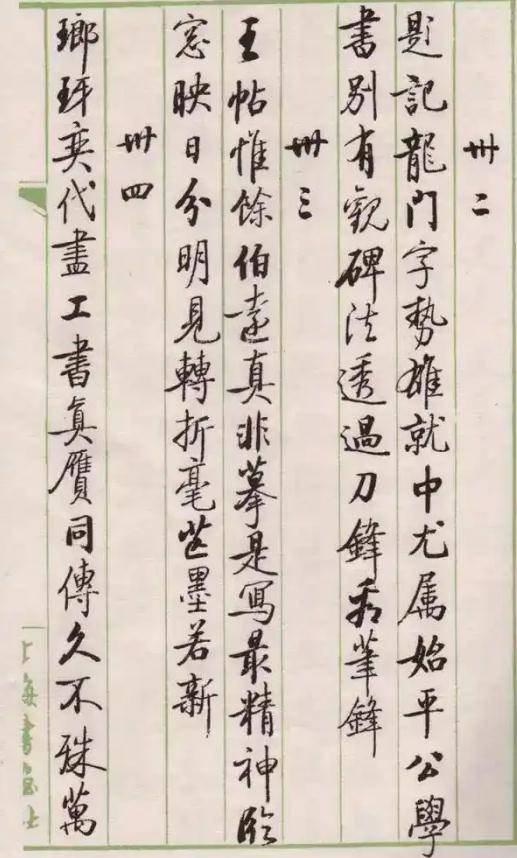 卅二
題記龍門字勢雄就中尤属始平公學
書別有觀碑法透過刀鋒看筆鋒
卅三
王帖惟餘伯遠真非摹是寫最精神臨
窓映日分明見轉折毫芒墨若新
卅四
瑯玡奕代盡工書真贗同傳久不殊萬
上海書画社